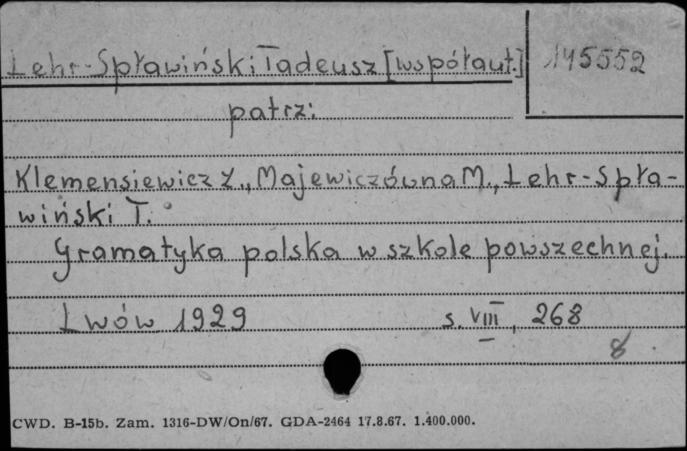 Lehr-Spławiński Tadeusz [współaut.] 145552
patrz:
Klemensiewicz Z., Majewiczówna M., Lehr-Spła-
wiński T.
Gramatyka polska w szkole powszechnej.
Lwów 1929 s. VIII, 268
8
CWD. B-15b. Zam. 1316-DW/On/67. GDA-2464 17.8.67. 1.400.000.